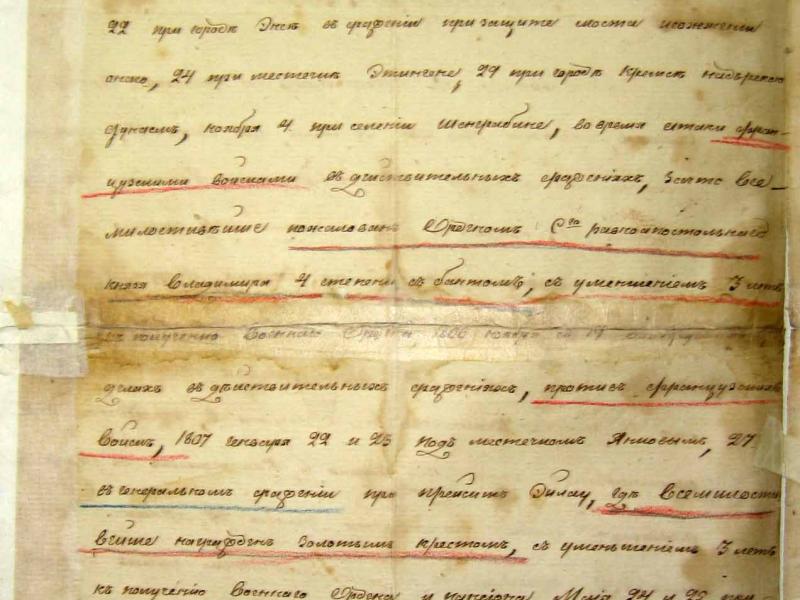 22 при городѣ Энсѣ въ сраженіи при защитѣ моста
онаго, 24 при местечкѣ Этингенѣ, 29 при городѣ Кремсѣ
Дунаемъ, ноября 4 при селеніи Шенграбине, во время атаки фран-
цузскими войсками въ действительныхъ сраженіяхъ, за что все-
милостивѣйше пожалованъ Орденомъ С:го равноапостольнаго
князя Владимира 4 степени съ бантомъ, съ уменшеніемъ 3 летъ
къ полученію Военнаго Ордена 1806
делахъ въ действительныхъ сраженіяхъ, противъ французскихъ
войскъ, 1807 генваря 22 и 23 подъ местечкомъ Янковымъ, 27
въ генеральномъ сраженіи при Прейсишъ Эйлау, где всемилости
вейше награжденъ золотымъ крестомъ, съ уменьшеніемъ 3 летъ
къ полученію военнаго Ордена и пансіона Маія 24 и 25